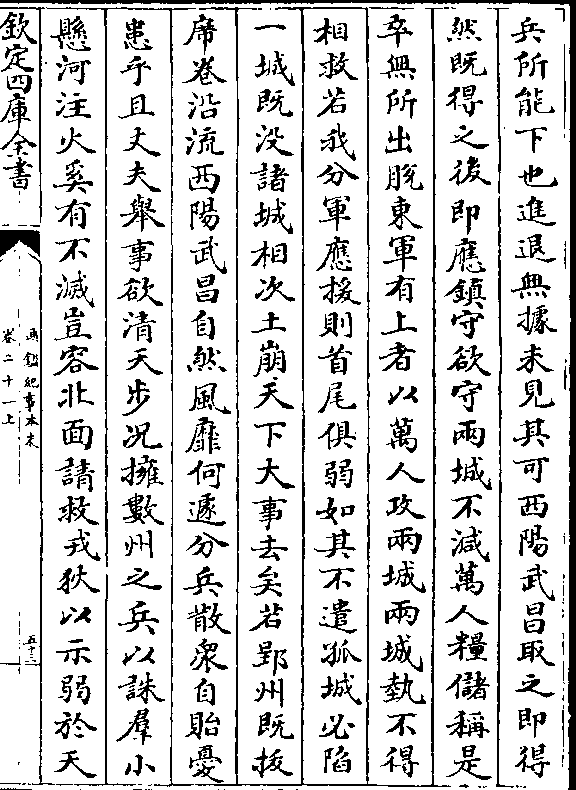 兵所能下也進退無據未見其可西陽武昌取之即得
然既得之後即應鎮守欲守兩城不減萬人糧儲稱是
卒無所出脫東軍有上者以萬人攻兩城兩城埶不得
相救若我分軍應援則首尾俱弱如其不遣孤城必陷
一城既没諸城相次土崩天下大事去矣若郢州既拔
席卷沿流西陽武昌自然風靡何遽分兵散衆自貽憂
患乎且丈夫舉事欲清天步况擁數州之兵以誅羣小
懸河注火奚有不滅豈容北面請救戎狄以示弱於天
欽定四庫全書
通鑑紀事本末
卷二十一上
五十三